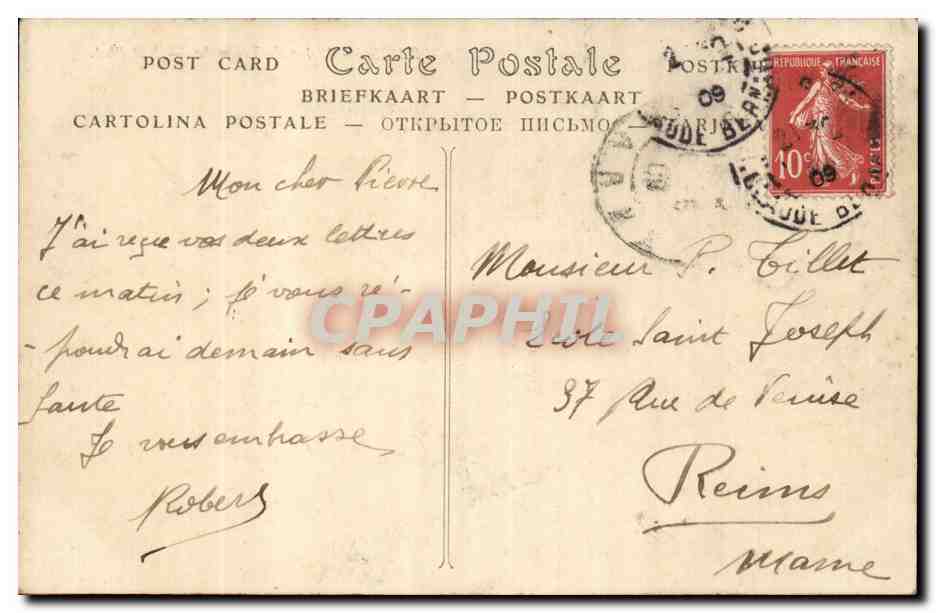 POST CARD Carte Postale
BRIEFKAART — POSTKAART
CARTOLINA POSTALE — ОТКРЫТОЕ ПИСЬМО —
RÉPUBLIQUE FRANÇAISE
10c
09
09
CLAUDE BERNARD
Mon cher Pierre
J'ai reçu vos deux lettres
ce matin ; je vous ré-
-pondrai demain sans
faute
Je vous embrasse
Robert
Monsieur P. Tillet
Ecole Saint Joseph
37 Rue de Venise
Reims
Marne
CPAPHIL